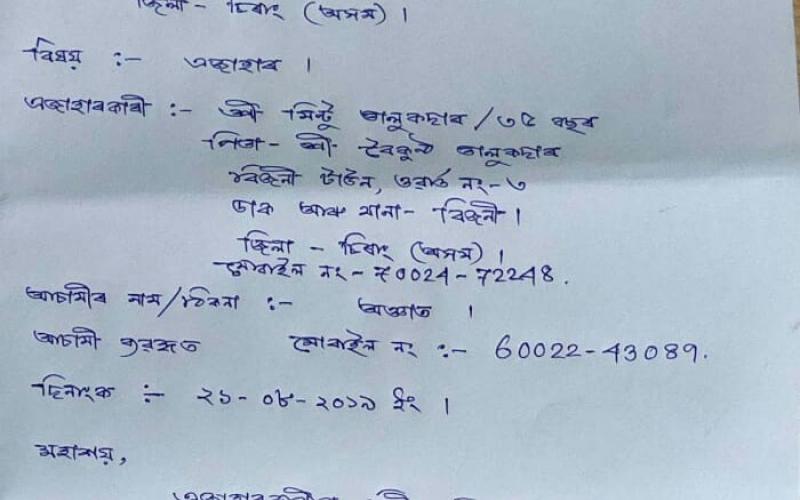 জিলা - চিৰাং (অসম) ।
বিষয় :- এজাহাৰ ।
এজাহাৰকাৰী :- শ্ৰী মিন্টু তালুকদাৰ / ৩৫ বছৰ
পিতা - শ্ৰী বৈকুন্ঠ তালুকদাৰ
বিজনী টাউন, ওৱাৰ্ড নং - ৩
ডাক আৰু থানা - বিজনী ।
জিলা - চিৰাং (অসম) ।
মোবাইল নং - 70024-72248.
আচামীৰ নাম / ঠিকনা :- অজ্ঞাত ।
আচামী মোবাইল নং :- 60022-43089.
দিনাংক :- ২১-০৮-২০১৯ ইং ।
মহাশয়,